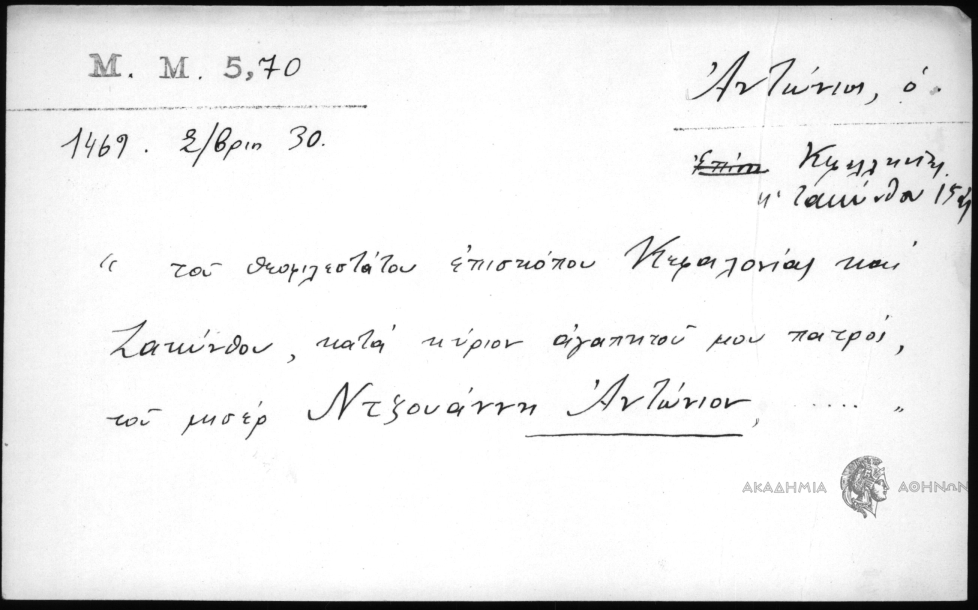 Μ. Μ. 5,70
Ἀντώνιος, ὁ.
1469. 2/βρίη 30.
Ζακύνθου 15
“ τοῦ θεοφιλεστάτου ἐπισκόπου Κεφαλονίας καὶ
Ζακύνθου, κατὰ κύριον ἀγαπητοῦ μου πατρός,
τοῦ μισέρ Ντζουάννη Ἀντώνιον, ..... „
ΑΚΑΔΗΜΙΑ ΑΘΗΝΩΝ